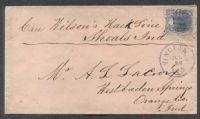 Care Wilson's Hack Line
Shoals Ind
Mr. A. L. LaCroix
West baden Springs
Orange Co.
Ind